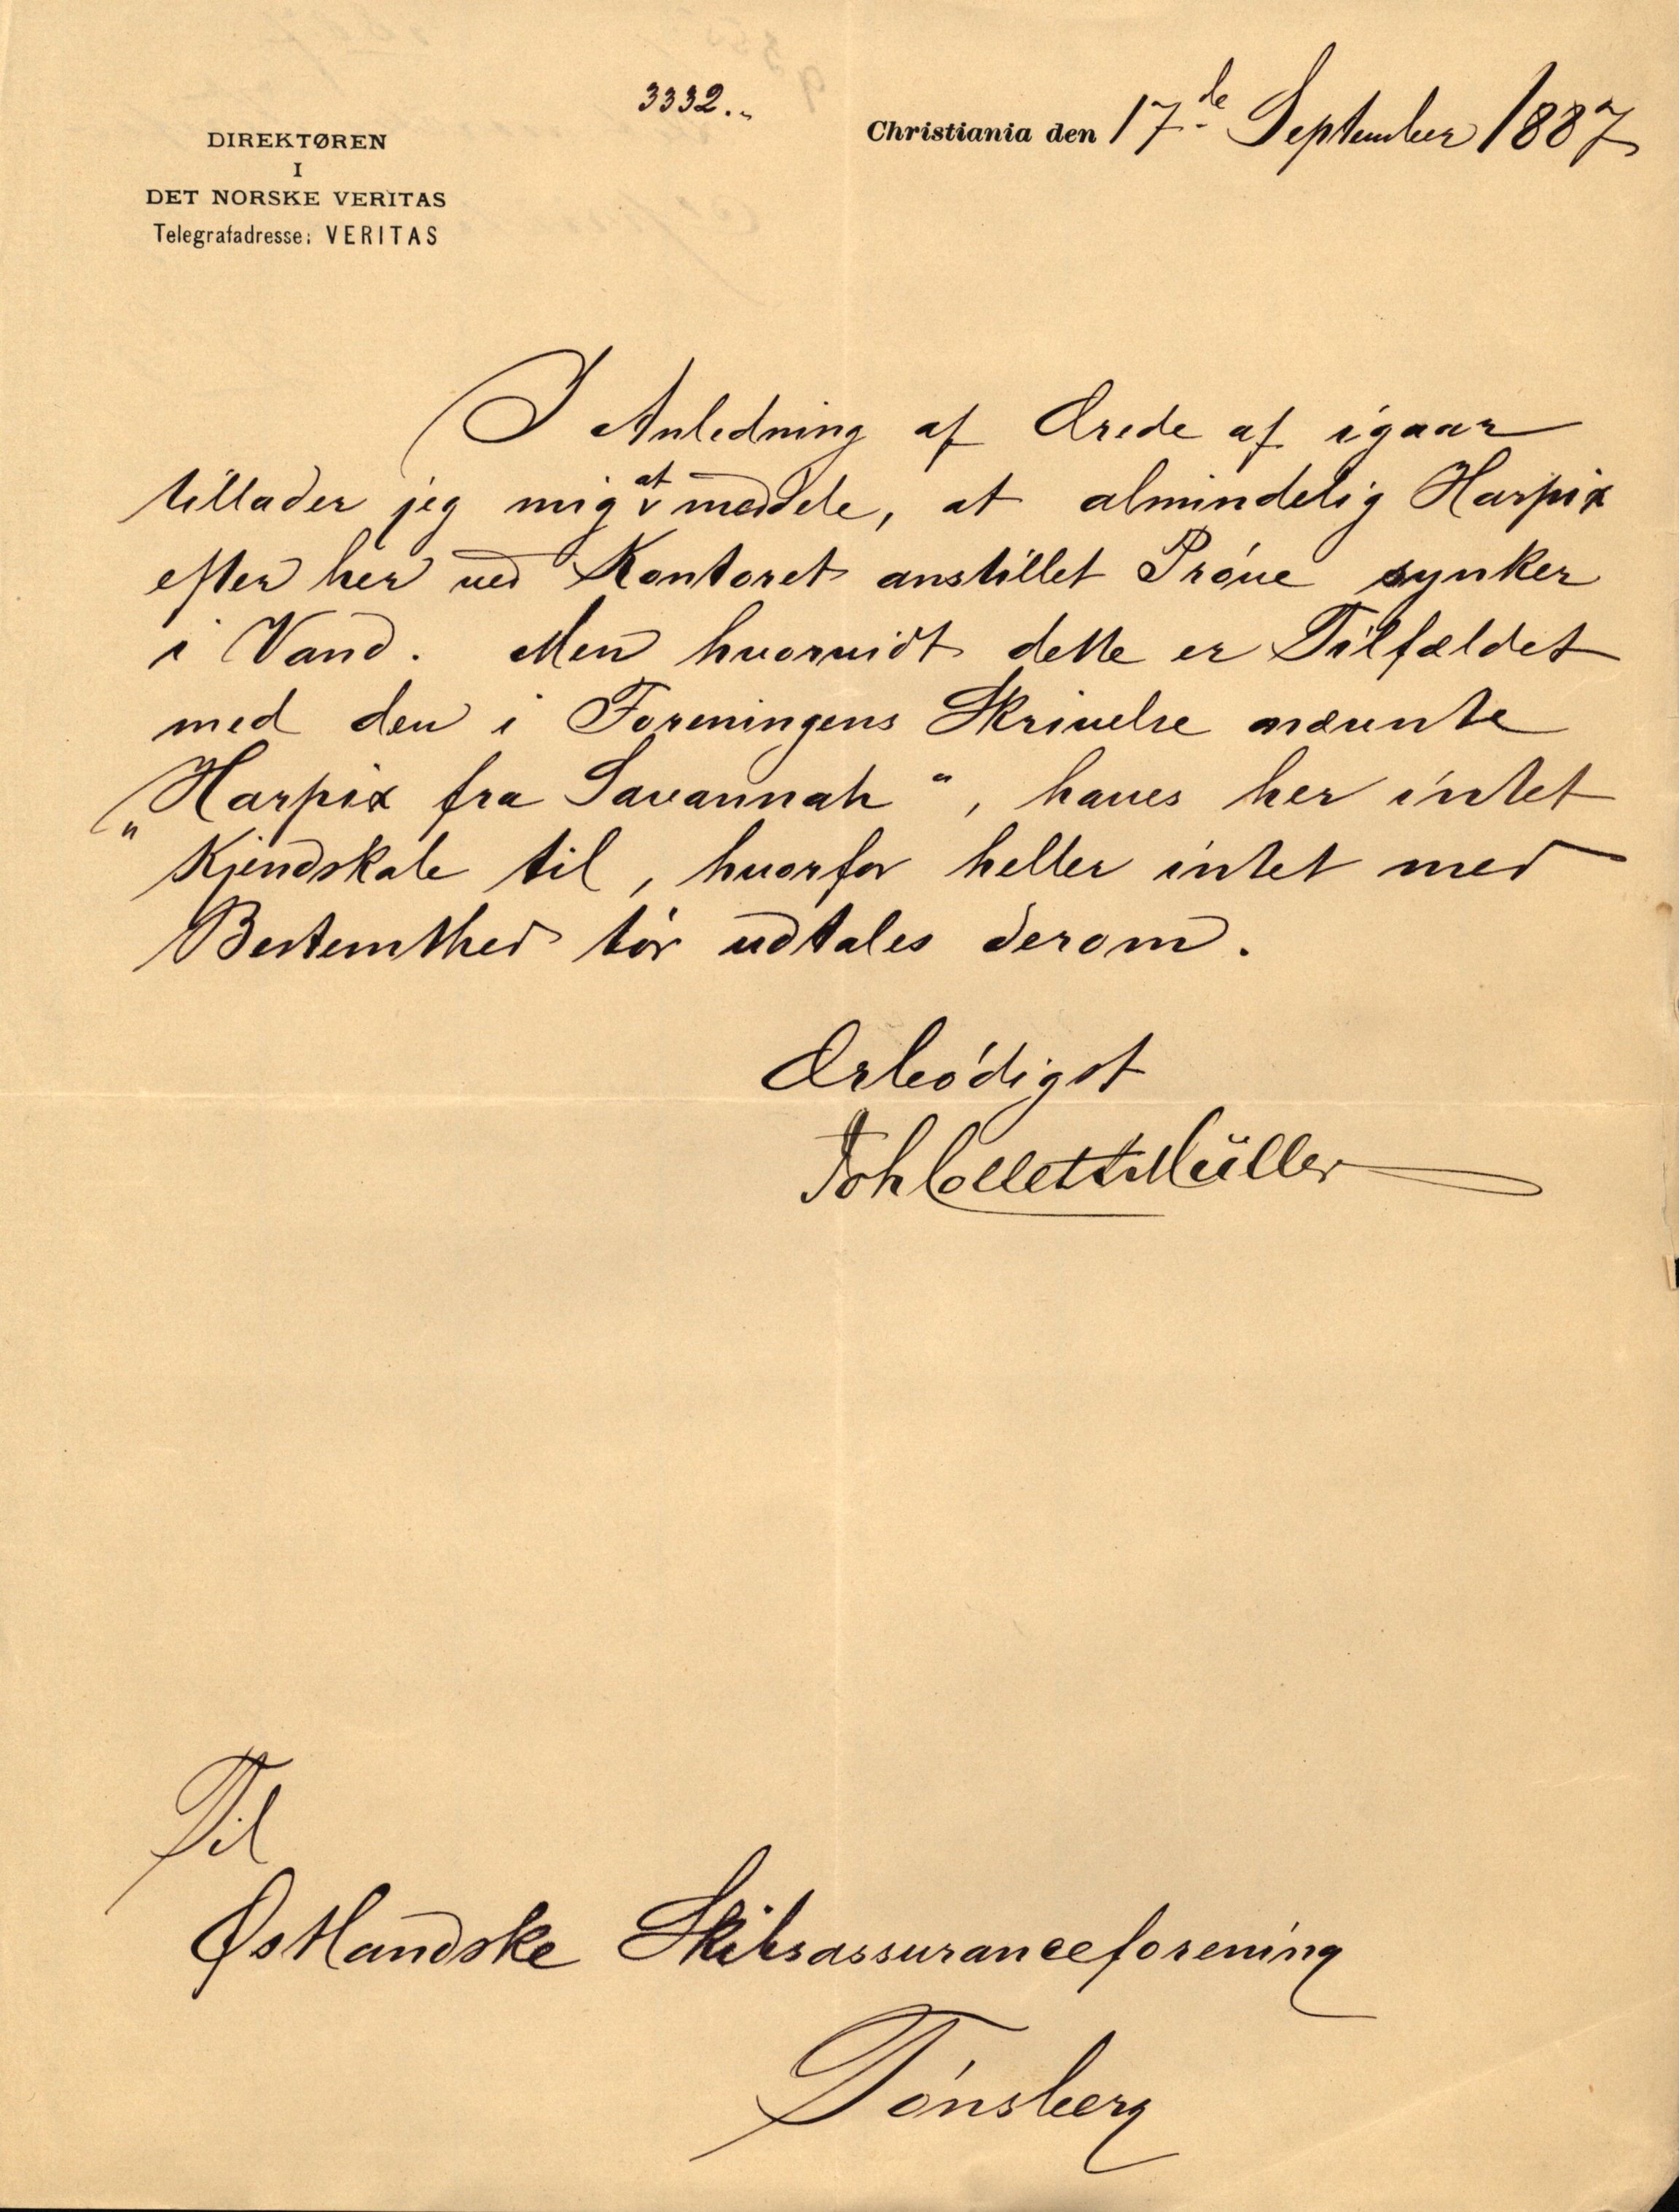 3332.
Christiania den 17de September 1887
DIREKTØREN
I
DET NORSKE VERITAS
Telegrafadresse: VERITAS
I Anledning af Ærede af igaar
tillader jeg mig at meddele, at almindelig Harpix
efter her ved Kontoret anstillet Prøve synker
i Vand. Men hvorvidt dette er Tilfældet
med den i Foreningens Skrivelse nævnte
„Harpix fra Savannah“, haves her intet
Kjendskab til, hvorfor heller intet med
Bestemthed tør udtales derom.
Ærbødigst
Joh Collett Müller
Til
Østlandske Skibsassuranceforening
Tønsberg